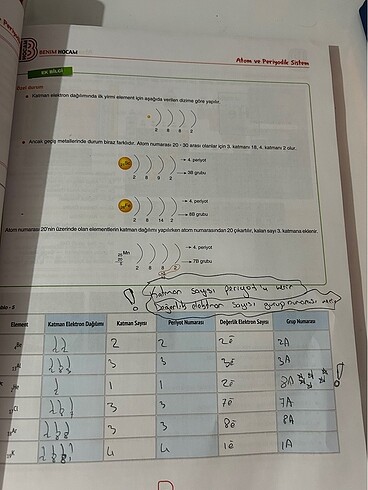 BENİM HOCAM
Atom ve Periyodik Sistem
EK BİLGİ
Özel durum
Katman elektron dağılımında ilk yirmi element için aşağıda verilen dizime göre yapılır.
2 8 8 2
Ancak geçiş metallerinde durum biraz farklıdır. Atom numarası 20 - 30 arası olanlar için 3. katmanı 18, 4. katmanı 2 olur.
4. periyot
3B grubu
2 8 9 2
4. periyot
8B grubu
2 8 14 2
Atom numarası 20'nin üzerinde olan elementlerin katman dağılımı yapılırken atom numarasından 20 çıkartılır, kalan sayı 3. katmana eklenir.
25Mn
4. periyot
7B grubu
2 8 8 2
Katman sayısı periyot'u verir
Değerlik elektron sayısı grup numarası
Element Katman Elektron Dağılımı Katman Sayısı Periyot Numarası Değerlik Elektron Sayısı Grup Numarası
4Be 2 2 2 2 2ē 2A
Al 2 8 3 3 3 3ē 3A
He 2 1 1 2ē 8A !
Cl 2 8 7 3 3 7ē 7A
Ar 2 8 8 3 3 8ē 8A
19K 2 8 8 1 4 4 1ē 1A